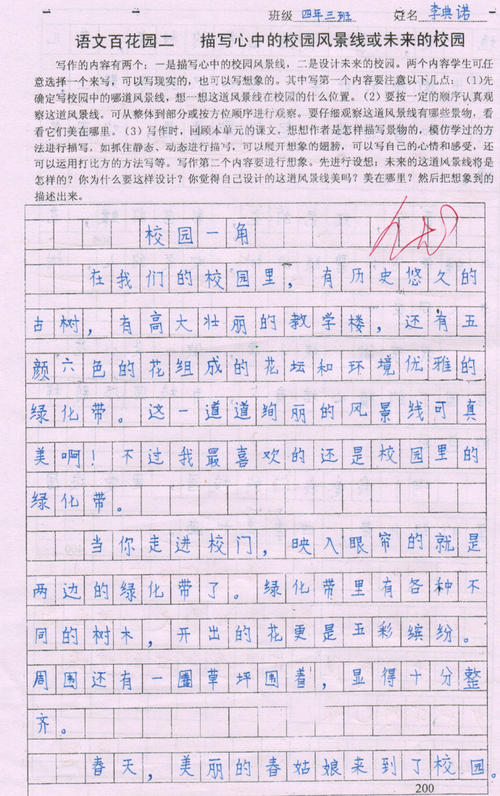 班级 四年三班 姓名 李典诺
语文百花园二 描写心中的校园风景线或未来的校园
写作的内容有两个：一是描写心中的校园风景线，二是设计未来的校园。两个内容学生可任
意选择一个来写，可以写现实的，也可以写想象的。其中写第一个内容要注意以下几点：(1)先
确定写校园中的哪道风景线，想一想这道风景线在校园的什么位置。(2)要按一定的顺序认真观
察这道风景线。可从整体到部分或按方位顺序进行观察。要仔细观察这道风景线有哪些景物，看
看它们美在哪里。(3)写作时，回顾本单元的课文，想想作者是怎样描写景物的，模仿学过的方
法进行描写，如抓住静态、动态进行描写，可以展开想象的翅膀，可以写自己的心情和感受，还
可以运用打比方的方法写等。写作第二个内容要进行想象。先进行设想：未来的这道风景线将是
怎样的？你为什么要这样设计？你觉得自己设计的这道风景线美吗？美在哪里？然后把想象到的
描述出来。
校园一角
在我们的校园里，有历史悠久的
古树，有高大壮丽的教学楼，还有五
颜六色的花组成的花坛和环境优雅的
绿化带。这一道道绚丽的风景线可真
美啊！不过我最喜欢的还是校园里的
绿化带。
当你走进校门，映入眼帘的就是
两边的绿化带了。绿化带里有各种不
同的树木，开出的花更是五彩缤纷。
周围还有一圈草坪围着，显得十分整
齐。
春天，美丽的春姑娘来到了校园。
200